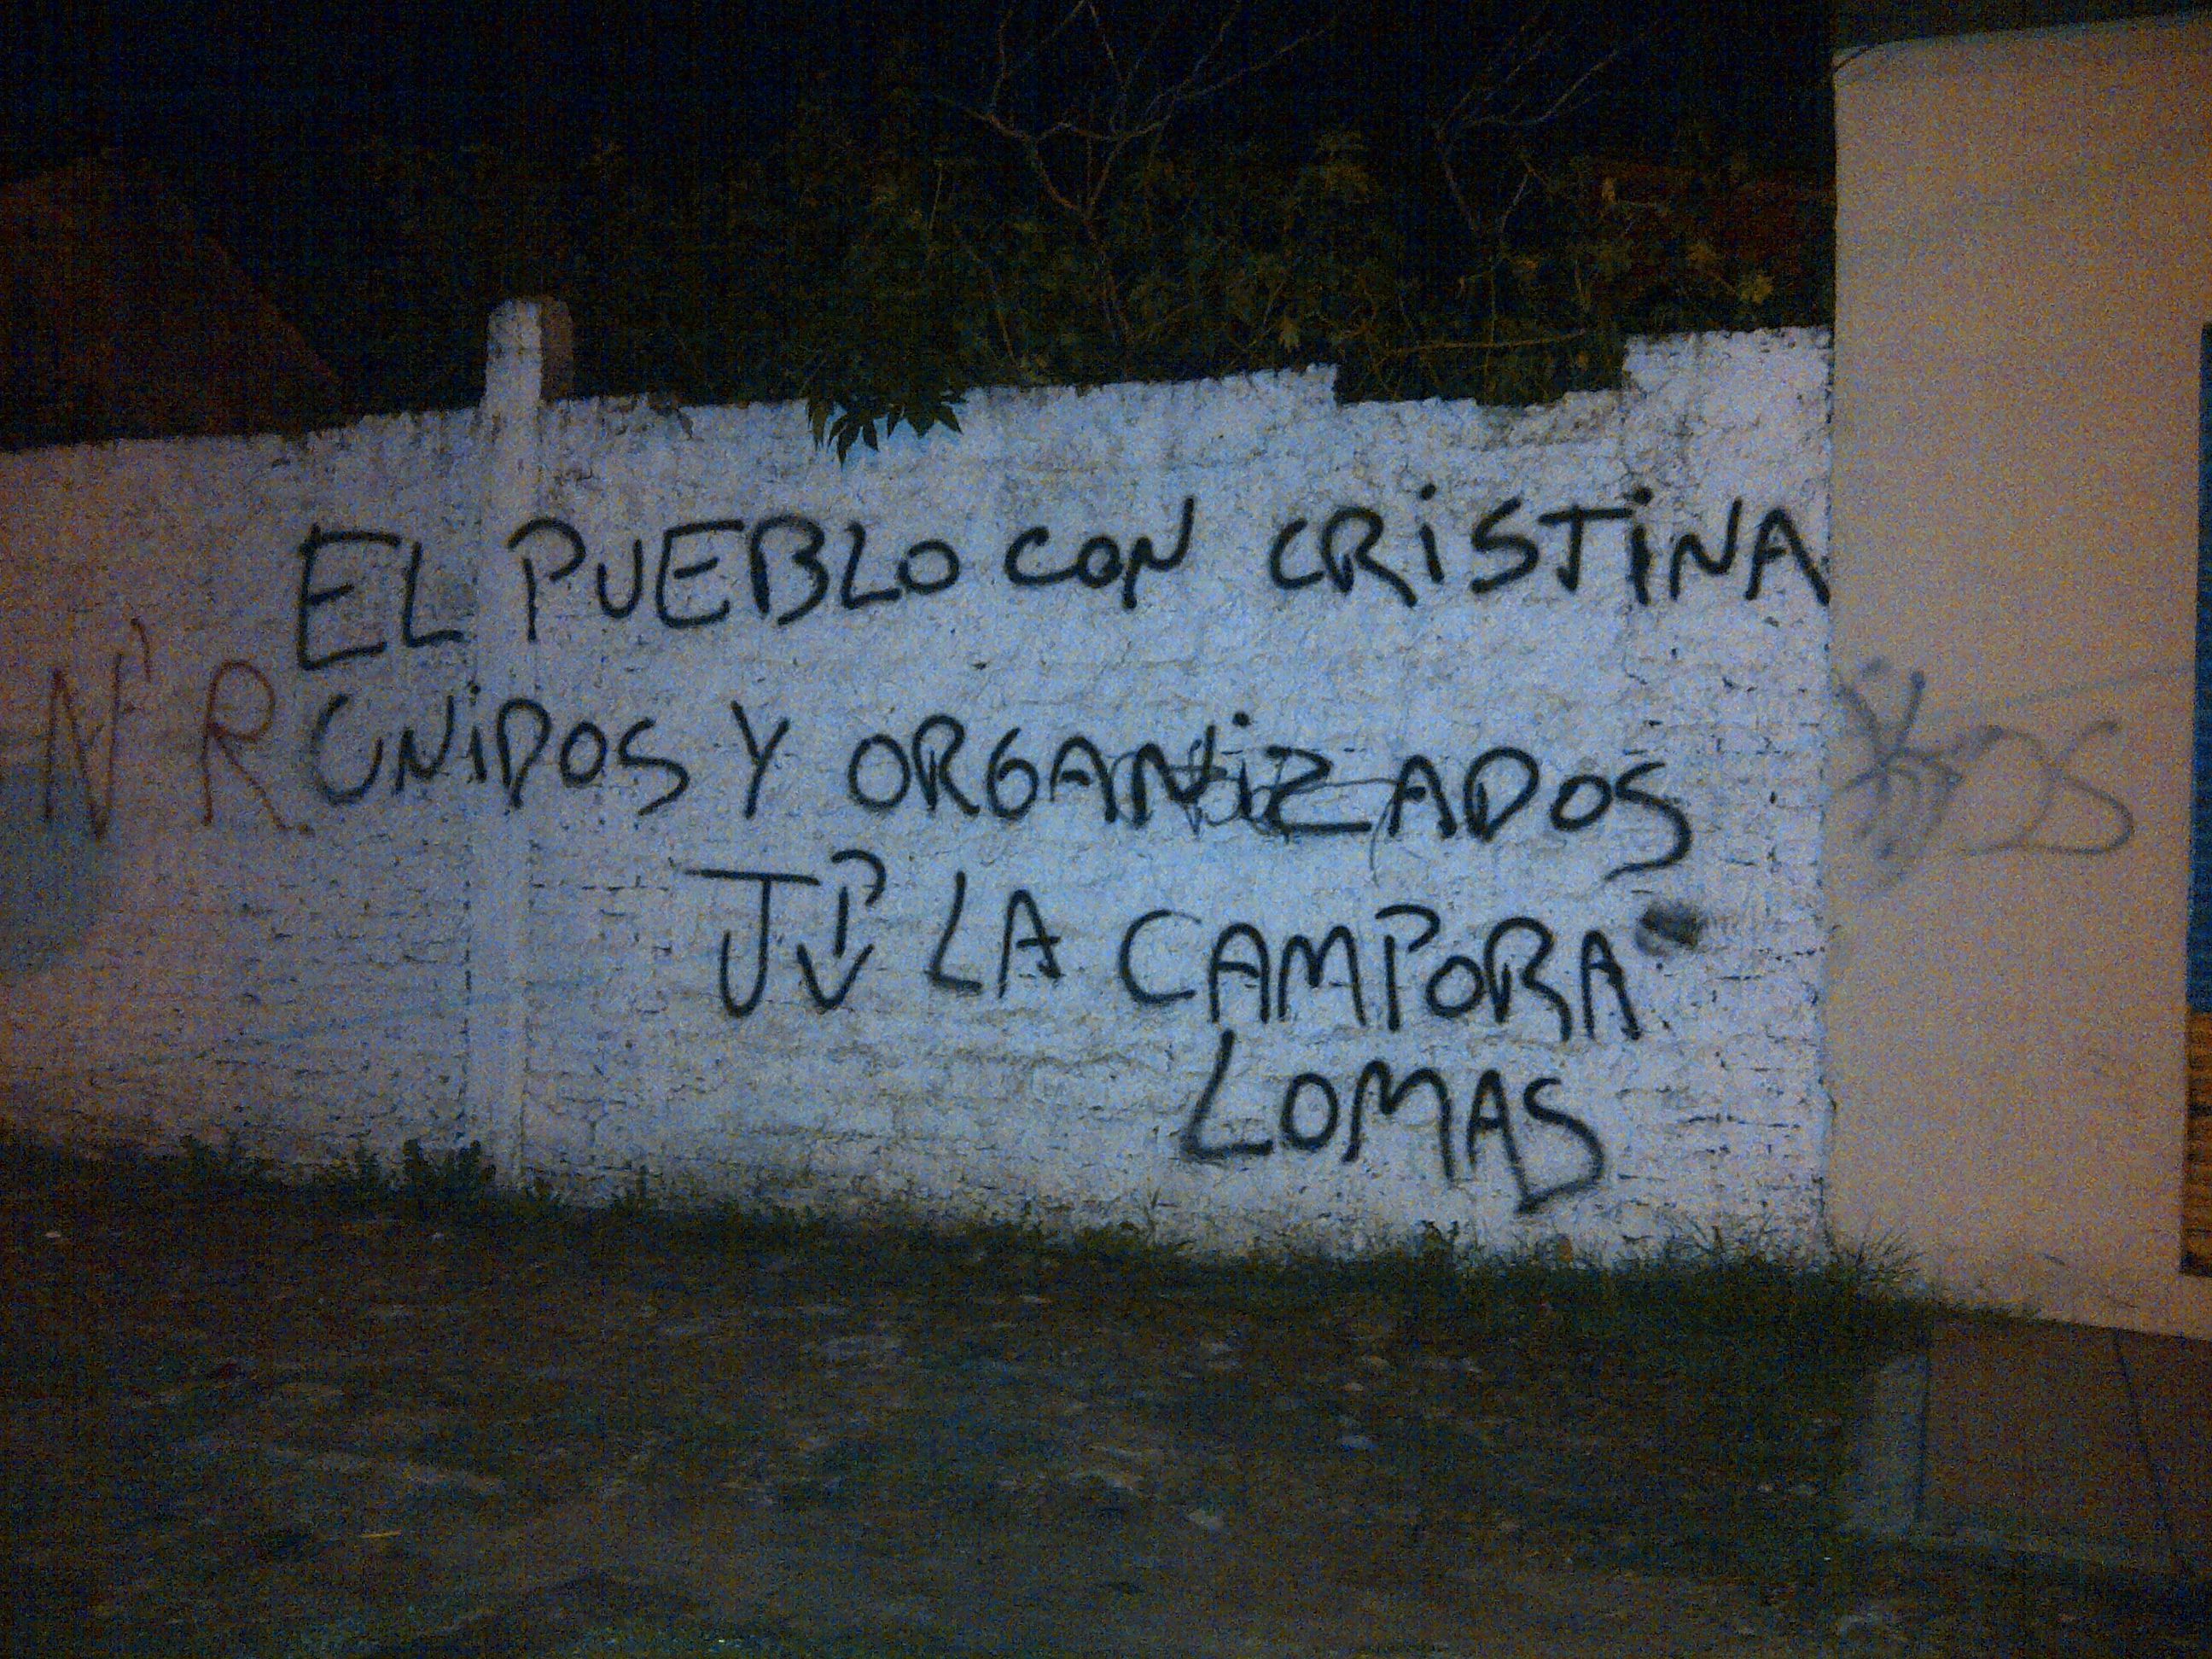 EL PUEBLO CON CRISTINA
N R UNIDOS Y ORGANIZADOS
LA CAMPORA
LOMAS